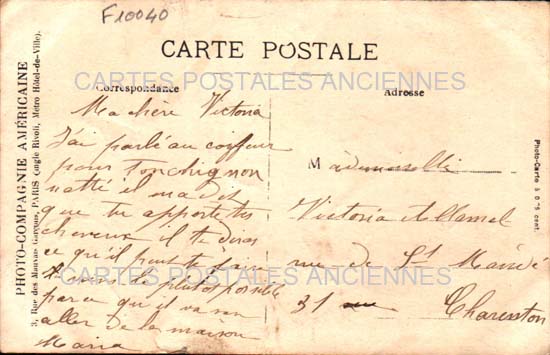 F10040
CARTE POSTALE
CARTES POSTALES ANCIENNES
Correspondance
Adresse
Ma chère Victoria
J'ai parlé au coiffeur
pour ton chignon
natté il m'a dit
que tu apporte tes
cheveux il te diras
ce qu'il peut te faire
le plutot possible
parce qu'il va s'en
aller de la maison
Maria
Mademoiselle
Victoria
rue de St Mandé
31
Charenton
CARTES POSTALES ANCIENNES
PHOTO-COMPAGNIE AMÉRICAINE
3, Rue des Mauvais Garçons, PARIS (angle Rivoli, Métro Hôtel-de-Ville).
Photo-Carte à 0.75 cent.